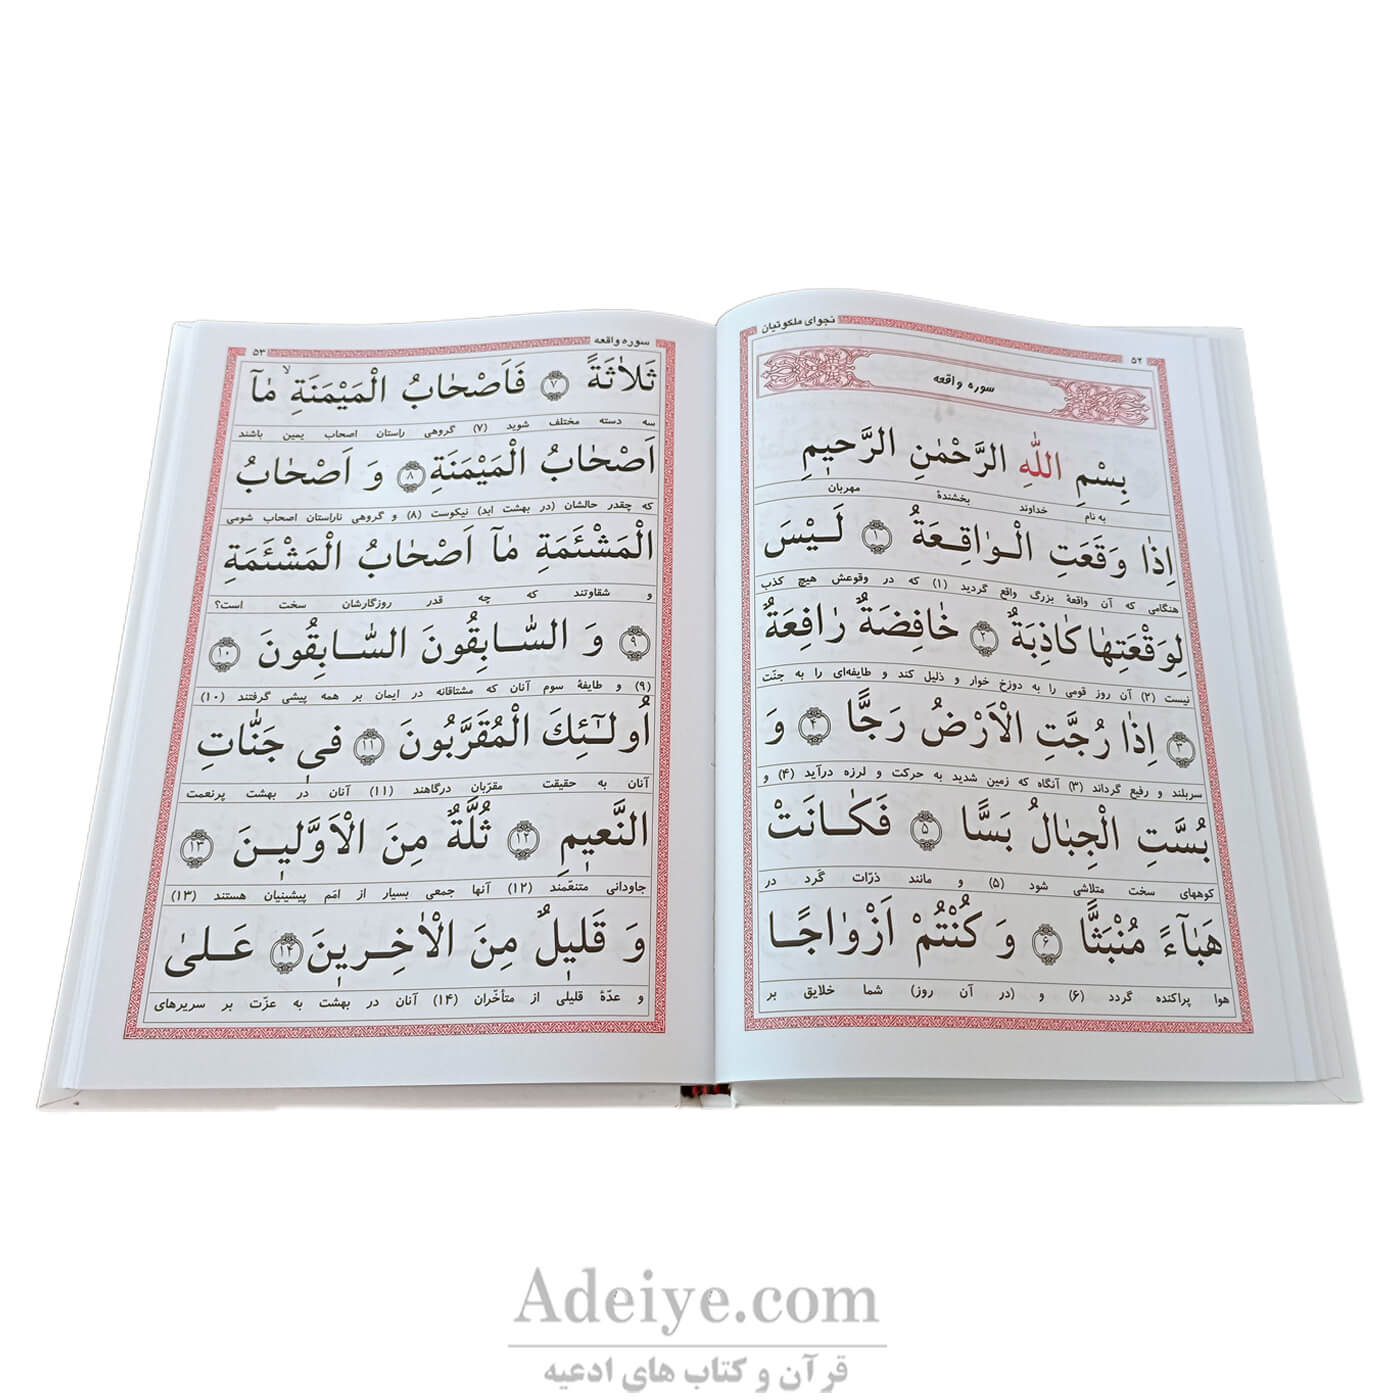 نجوای ملکوتیان
۵۲
سوره واقعه
بِسْمِ اللّٰهِ الرَّحْمٰنِ الرَّحیٖمِ
به نام خداوند بخشندهٔ مهربان
اِذٰا وَقَعَتِ الْوٰاقِعَةُ ۱ لَیْسَ
هنگامی که آن واقعهٔ بزرگ واقع گردید (۱) که در وقوعش هیچ کذب
لِوَقْعَتِهٰا کٰاذِبَةٌ ۲ خٰافِضَةٌ رٰافِعَةٌ
نیست (۲) آن روز قومی را به دوزخ خوار و ذلیل کند و طایفه‌ای را به جنّت
۳ اِذٰا رُجَّتِ الْاَرْضُ رَجًّا ۴ وَ
سربلند و رفیع گرداند (۳) آنگاه که زمین شدید به حرکت و لرزه درآید (۴) و
بُسَّتِ الْجِبٰالُ بَسًّا ۵ فَکٰانَتْ
کوههای سخت متلاشی شود (۵) و مانند ذرّات گَرد در
هَبٰآءً مُنْبَثًّا ۶ وَ کُنْتُمْ اَزْوٰاجًا
هوا پراکنده گردد (۶) و (در آن روز) شما خلایق بر
سوره واقعه
۵۳
ثَلاٰثَةً ۷ فَاَصْحٰابُ الْمَیْمَنَةِ مٰآ
سه دسته مختلف شوید (۷) گروهی راستان اصحاب یمین باشند
اَصْحٰابُ الْمَیْمَنَةِ ۸ وَ اَصْحٰابُ
که چقدر حالشان (در بهشت ابد) نیکوست (۸) و گروهی ناراستان اصحاب شومی
الْمَشْئَمَةِ مٰآ اَصْحٰابُ الْمَشْئَمَةِ
و شقاوتند که چه قدر روزگارشان سخت است؟
۹ وَ السّٰابِقُونَ السّٰابِقُونَ ۱۰
(۹) و طایفهٔ سوم آنان که مشتاقانه در ایمان بر همه پیشی گرفتند (۱۰)
اُولٰٓئِكَ الْمُقَرَّبُونَ ۱۱ فیٖ جَنّٰاتِ
آنان به حقیقت مقرّبان درگاهند (۱۱) آنان در بهشت پرنعمت
النَّعیٖمِ ۱۲ ثُلَّةٌ مِنَ الْاَوَّلیٖنَ ۱۳
جاودانی متنعّمند (۱۲) آنها جمعی بسیار از امَم پیشینیان هستند (۱۳)
وَ قَلیٖلٌ مِنَ الْاٰخِریٖنَ ۱۴ عَلیٰ
و عدّهٔ قلیلی از متأخّران (۱۴) آنان در بهشت به عزّت بر سریرهای
Adeiye.com
قرآن و کتاب های ادعیه